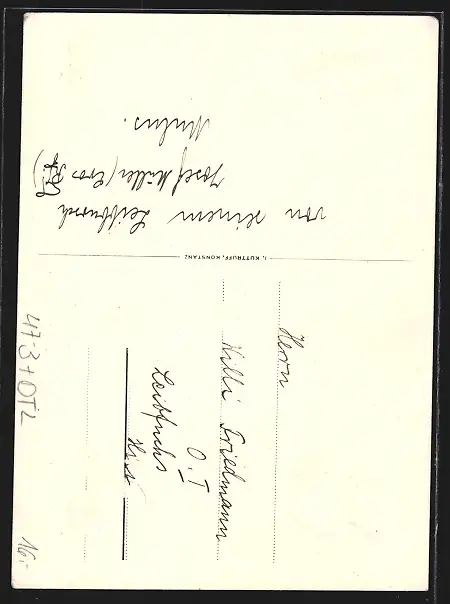 von seinem Leibbursch
Josef Müller (Cros
Mulus.
I. KUTTRUFF, KONSTANZ
Herrn
Willi Friedmann
O. I
Leibfuchs
47-3+OTL
16,-